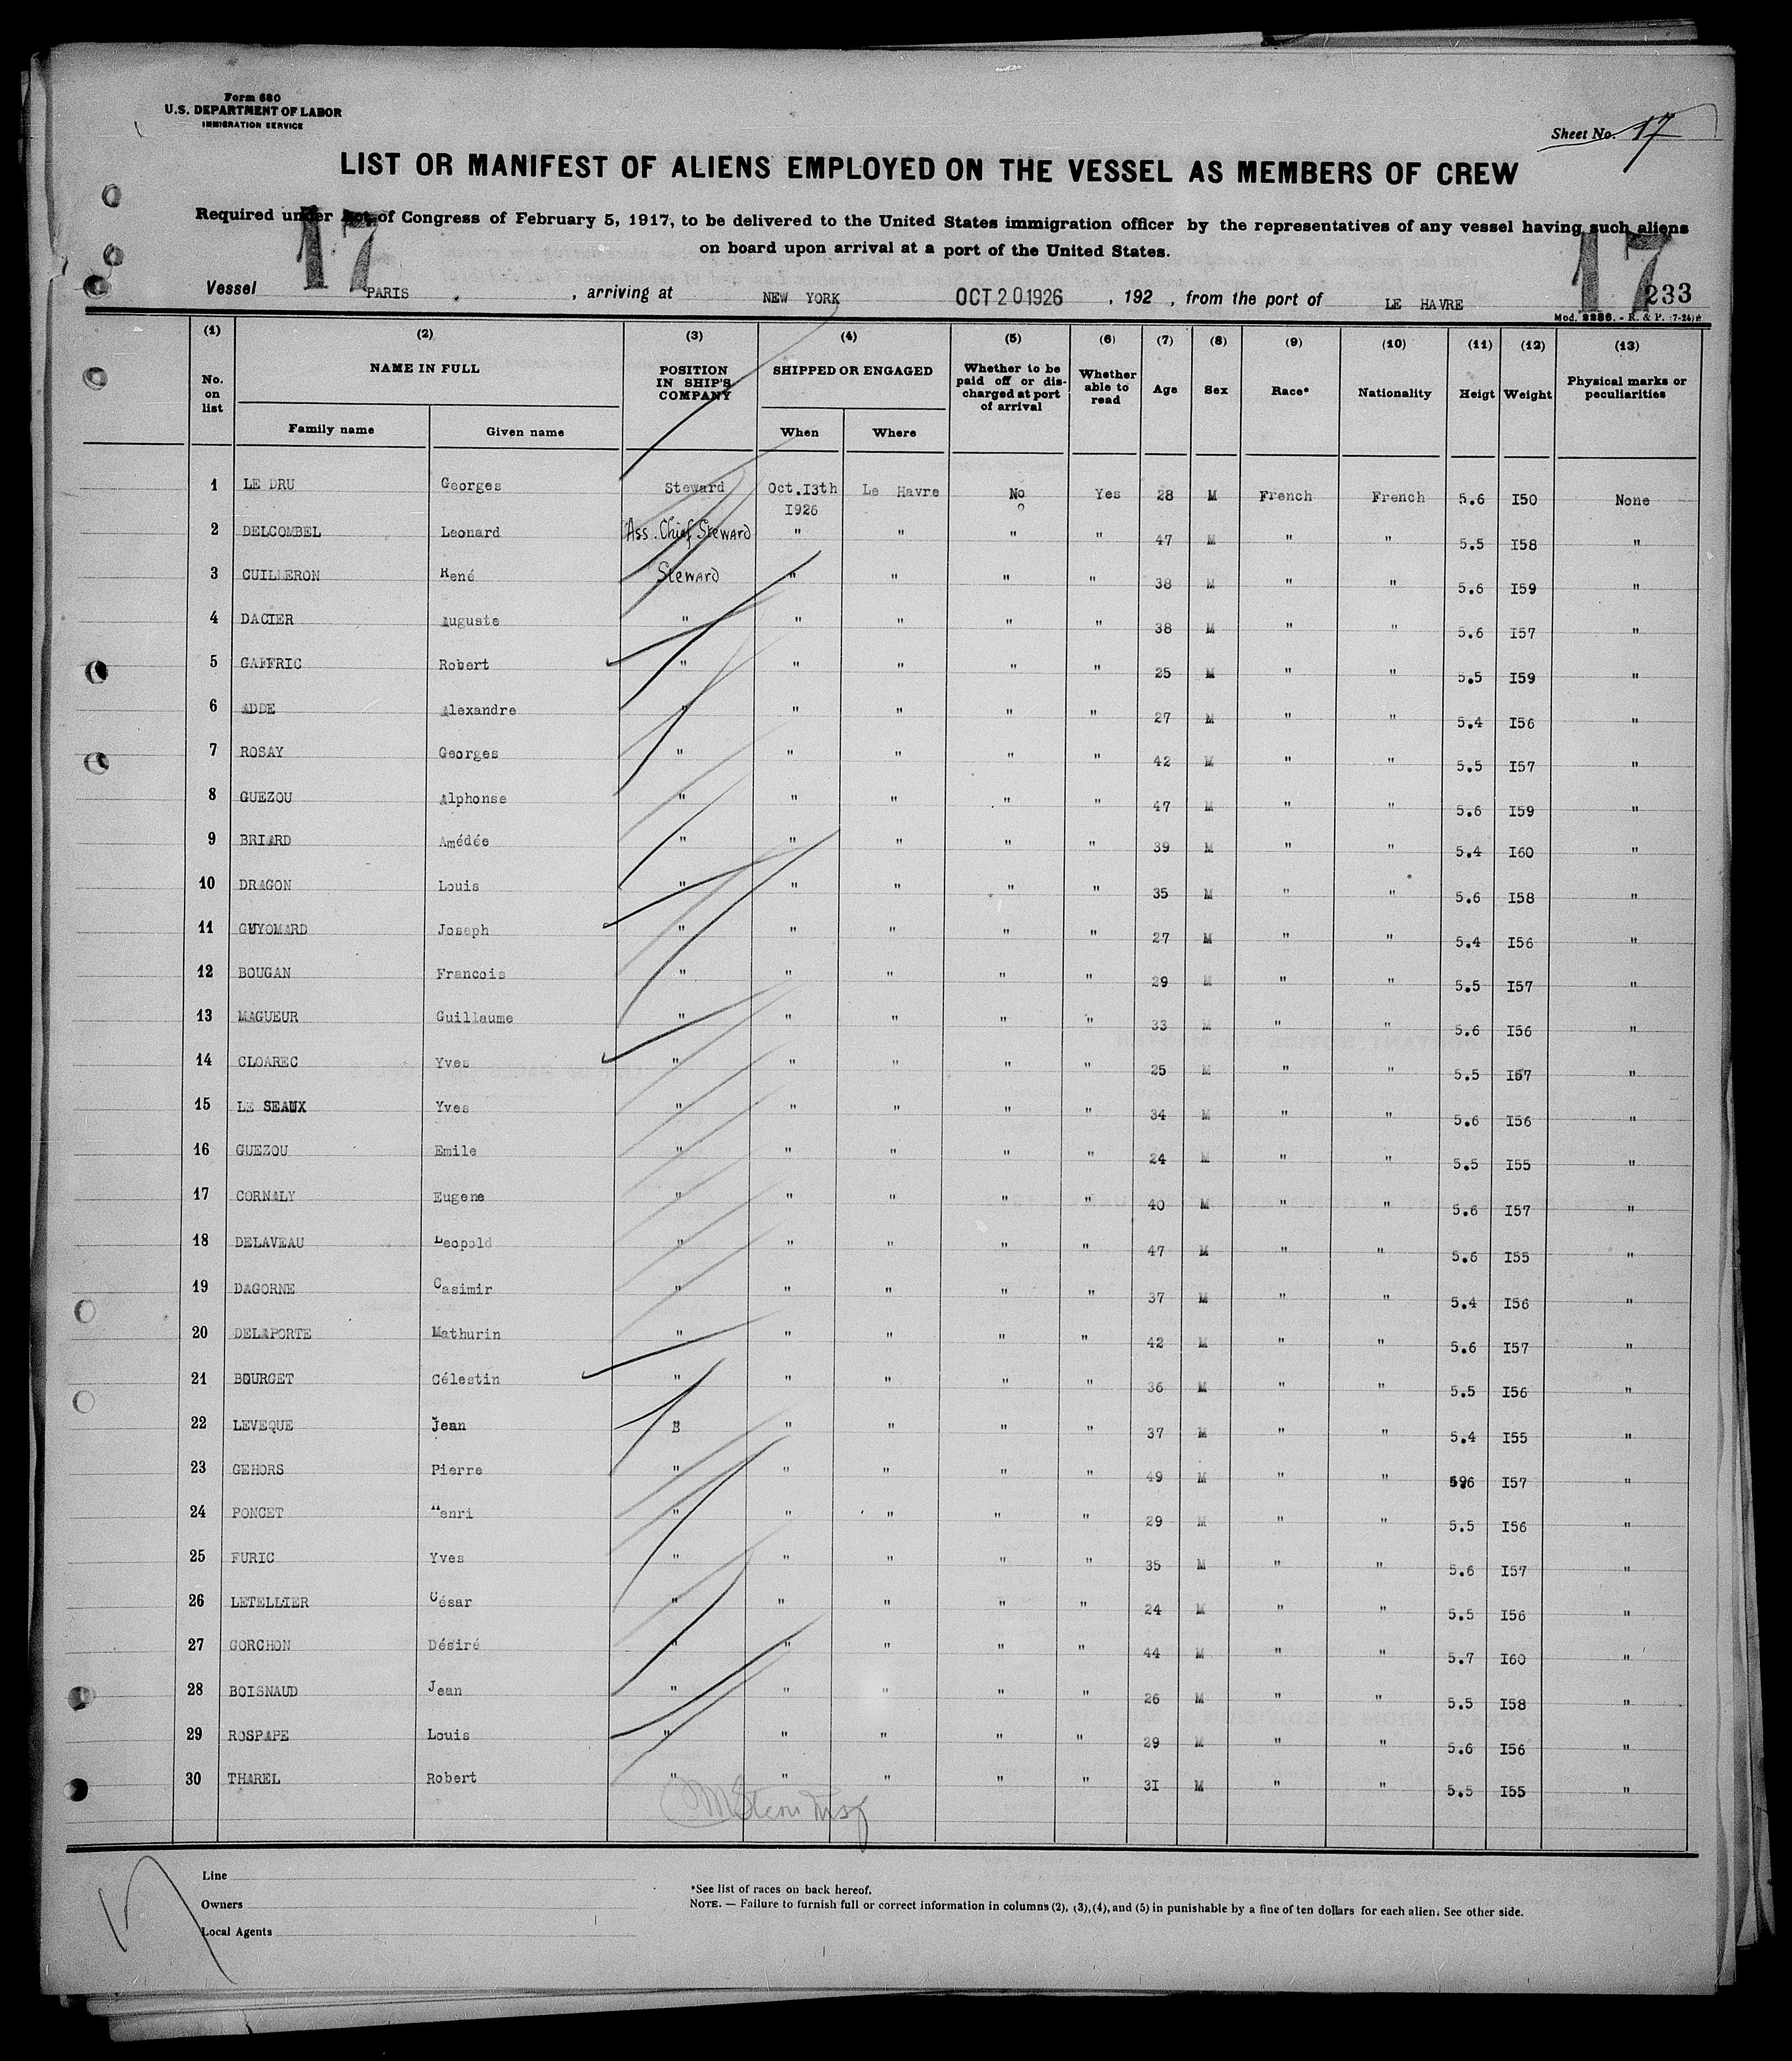 Form 680
U.S. DEPARTMENT OF LABOR
IMMIGRATION SERVICE
Sheet No. 17
LIST OR MANIFEST OF ALIENS EMPLOYED ON THE VESSEL AS MEMBERS OF CREW
Required under Act of Congress of February 5, 1917, to be delivered to the United States immigration officer by the representatives of any vessel having such aliens
on board upon arrival at a port of the United States.
17 17
Vessel PARIS , arriving at NEW YORK OCT 20 1926 , 192 , from the port of LE HAVRE 233
Mod. 2286. - R. & P. (7-24)
(1) (2) (3) (4) (5) (6) (7) (8) (9) (10) (11) (12) (13)
No. on list NAME IN FULL Family name Given name POSITION IN SHIP'S COMPANY SHIPPED OR ENGAGED When Where Whether to be paid off or discharged at port of arrival Whether able to read Age Sex Race* Nationality Heigt Weight Physical marks or peculiarities
1 LE DRU Georges Steward Oct.I3th I926 Le Havre No Yes 28 M French French 5.6 I50 None
2 DELCOMBEL Leonard Ass. Chief Steward " " " " 47 M " " 5.5 I58 "
3 CUILLERON René Steward " " " " 38 M " " 5.6 I59 "
4 DACIER Auguste " " " " " 38 M " " 5.6 I57 "
5 GAFFRIC Robert " " " " " 25 M " " 5.5 I59 "
6 ADDE Alexandre " " " " " 27 M " " 5.4 I56 "
7 ROSAY Georges " " " " " 42 M " " 5.5 I57 "
8 GUEZOU Alphonse " " " " " 47 M " " 5.6 I59 "
9 BRIARD Amédée " " " " " 39 M " " 5.4 I60 "
10 DRAGON Louis " " " " " 35 M " " 5.6 I58 "
11 GUYOMARD Joseph " " " " " 27 M " " 5.4 I56 "
12 BOUGAN Francois " " " " " 29 M " " 5.5 I57 "
13 MAGUEUR Guillaume " " " " " 33 M " " 5.6 I56 "
14 CLOAREC Yves " " " " " 25 M " " 5.5 I57 "
15 LE SEAUX Yves " " " " " 34 M " " 5.6 I56 "
16 GUEZOU Emile " " " " " 24 M " " 5.5 I55 "
17 CORNALY Eugene " " " " " 40 M " " 5.6 I57 "
18 DELAVEAU Leopold " " " " " 47 M " " 5.6 I55 "
19 DAGORNE Casimir " " " " " 37 M " " 5.4 I56 "
20 DELAPORTE Mathurin " " " " " 42 M " " 5.6 I57 "
21 BOURGET Célestin " " " " " 36 M " " 5.5 I56 "
22 LEVEQUE Jean " " " " " 37 M " " 5.4 I55 "
23 GEHORS Pierre " " " " " 49 M " " 5.6 I57 "
24 PONCET Henri " " " " " 29 M " " 5.5 I56 "
25 FURIC Yves " " " " " 35 M " " 5.6 I57 "
26 LETELLIER César " " " " " 24 M " " 5.5 I56 "
27 GORCHON Désiré " " " " " 44 M " " 5.7 I60 "
28 BOISNAUD Jean " " " " " 26 M " " 5.5 I58 "
29 ROSPAPE Louis " " " " " 29 M " " 5.6 I56 "
30 THAREL Robert " " " " " 3I M " " 5.5 I55 "
Line
Owners
Local Agents
*See list of races on back hereof.
NOTE. — Failure to furnish full or correct information in columns (2), (3), (4), and (5) in punishable by a fine of ten dollars for each alien. See other side.